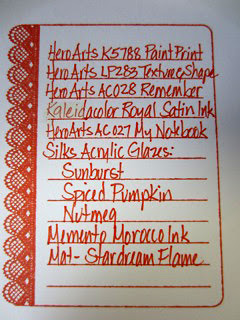 Hero Arts K5788 Paint Print
Hero Arts LP283 Texture, Shape
Hero Arts AC028 Remember
Kaleidacolor Royal Satin Ink
Hero Arts AC027 My Notebook
Silks Acrylic Glazes:
Sunburst
Spiced Pumpkin
Nutmeg
Memento Morocco Ink
Mat- Stardream Flame